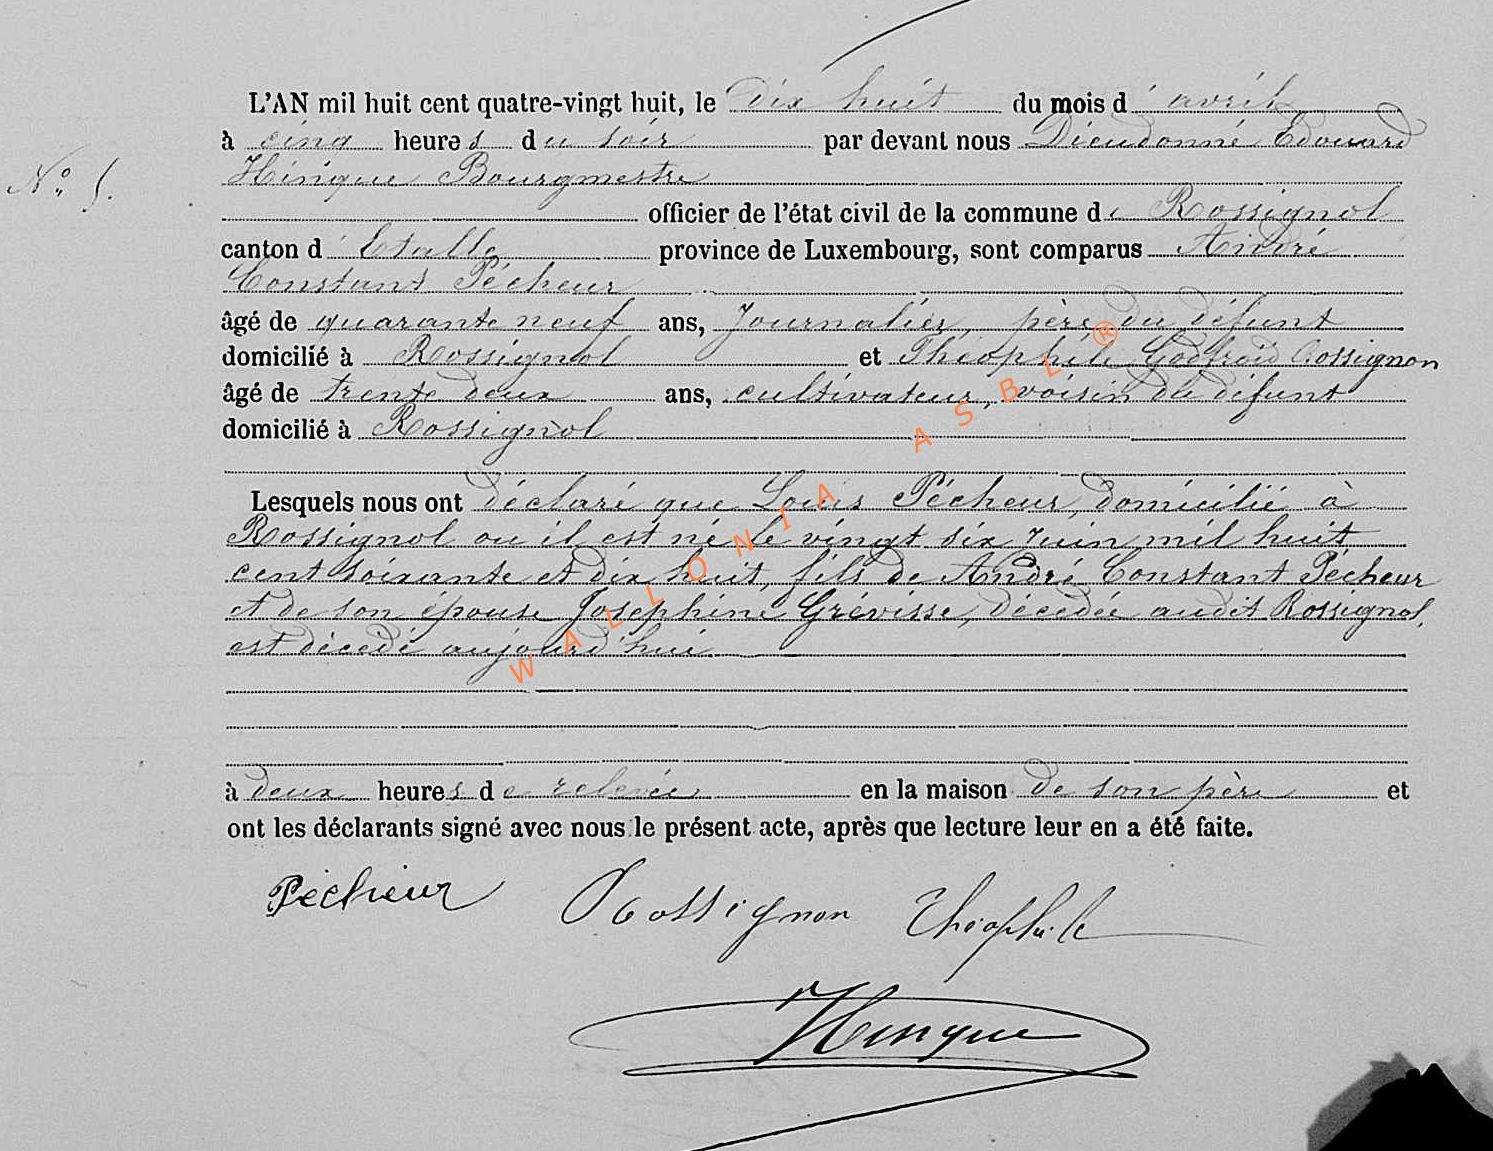 L'AN mil huit cent quatre-vingt huit, le dix huit du mois d'avril
à cinq heures du soir par devant nous Dieudonné Edouard
N° 5.
Hinque Bourgmestre
officier de l'état civil de la commune de Rossignol
canton d'Etalle province de Luxembourg, sont comparus André
Constant Pécheur
âgé de quarante neuf ans, Journalier, père du défunt
domicilié à Rossignol et Théophile Godfroid Rossignon
âgé de trente deux ans, cultivateur, voisin du défunt
domicilié à Rossignol
Lesquels nous ont déclaré que Louis Pécheur, domicilié à
Rossignol ou il est né le vingt six Juin mil huit
cent soixante et dix huit, fils de André Constant Pécheur
et de son épouse Joséphine Grévisse, décédée audit Rossignol,
est décédé aujourd'hui
à deux heures de relevée en la maison de son père et
ont les déclarants signé avec nous le présent acte, après que lecture leur en a été faite.
Pécheur Rossignon Théophile
Hinque
WALLONIA ASBL ®